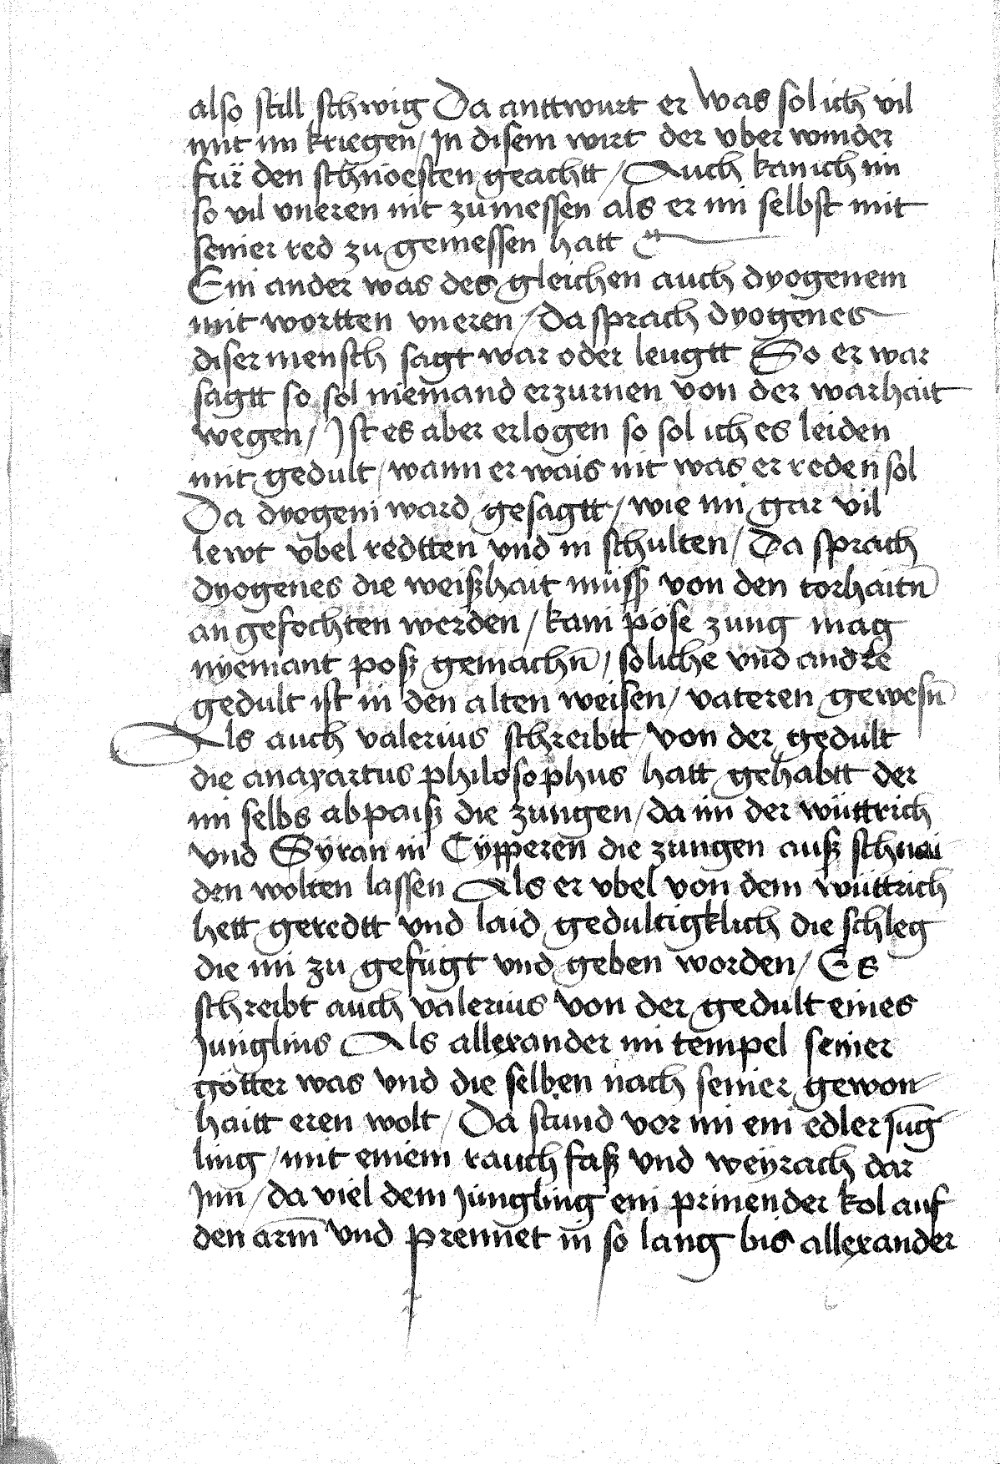 also still schwig Da anttwurt er Was sol ich vil
mit im kriegen / In disem wirt der vber winder
für den schnoesten geachtt / Auch kan ich im
so vil vneren nit zu messen als er im selbst mit
seiner red zu gemessen hatt
Ein ander was des gleichen auch dyogenem
mit wortten vneren / Da sprach dyogenes
diser mensch sagt war oder leugtt So er war
sagtt so sol niemand erzurnen von der warhait
wegen / Ist es aber erlogen so sol ich es leiden
mit gedult / wann er wais nit was er reden sol
Da dyogeni ward gesagtt / wie im gar vil
lewt v̈bel redtten vnd in schulten / Da sprach
dyogenes die weißhait müss von den torhaitn̄
an gefochten werden / kain pöse zung mag
nyemant poß gemachn̄ / soliche vnd andre
gedult ist in den alten weisen / vateren gewesn̄
Als auch valerius schreibtt / von der gedült
die anaxartus philosophus hatt gehabtt der
im selbs ab paiß die zungen / da im der wüttrich
vnd Syran in Cypperen die zungen auß schnei
den wolten lassen Als er vbel von dem wüttrich
hett geredtt vnd laid gedultigklich die schleg
die im zu gefügt vnd geben worden / Es
schreibt auch valerius von der gedult eines
Junglins Als allexander im tempel seiner
götter was vnd die selben nach seiner gewon
haitt eren wolt / Da stund vor im ein edler iūg
ling / mit einem rauch faß vnd weyrach dar
Inn / da viel dem Jüngling ein prinender kol auf
den arm vnd prennet in so lang bis allexander